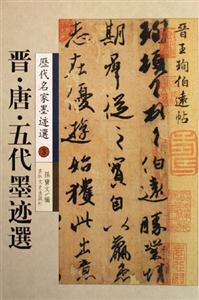 晋王珣伯遠帖
歷代名家墨迹選
3
孫寶文/編
晋·唐·五代墨迹選
珣頓首頓首伯遠勝業情
期羣從之寳自以羸患
志在優遊始獲此出意